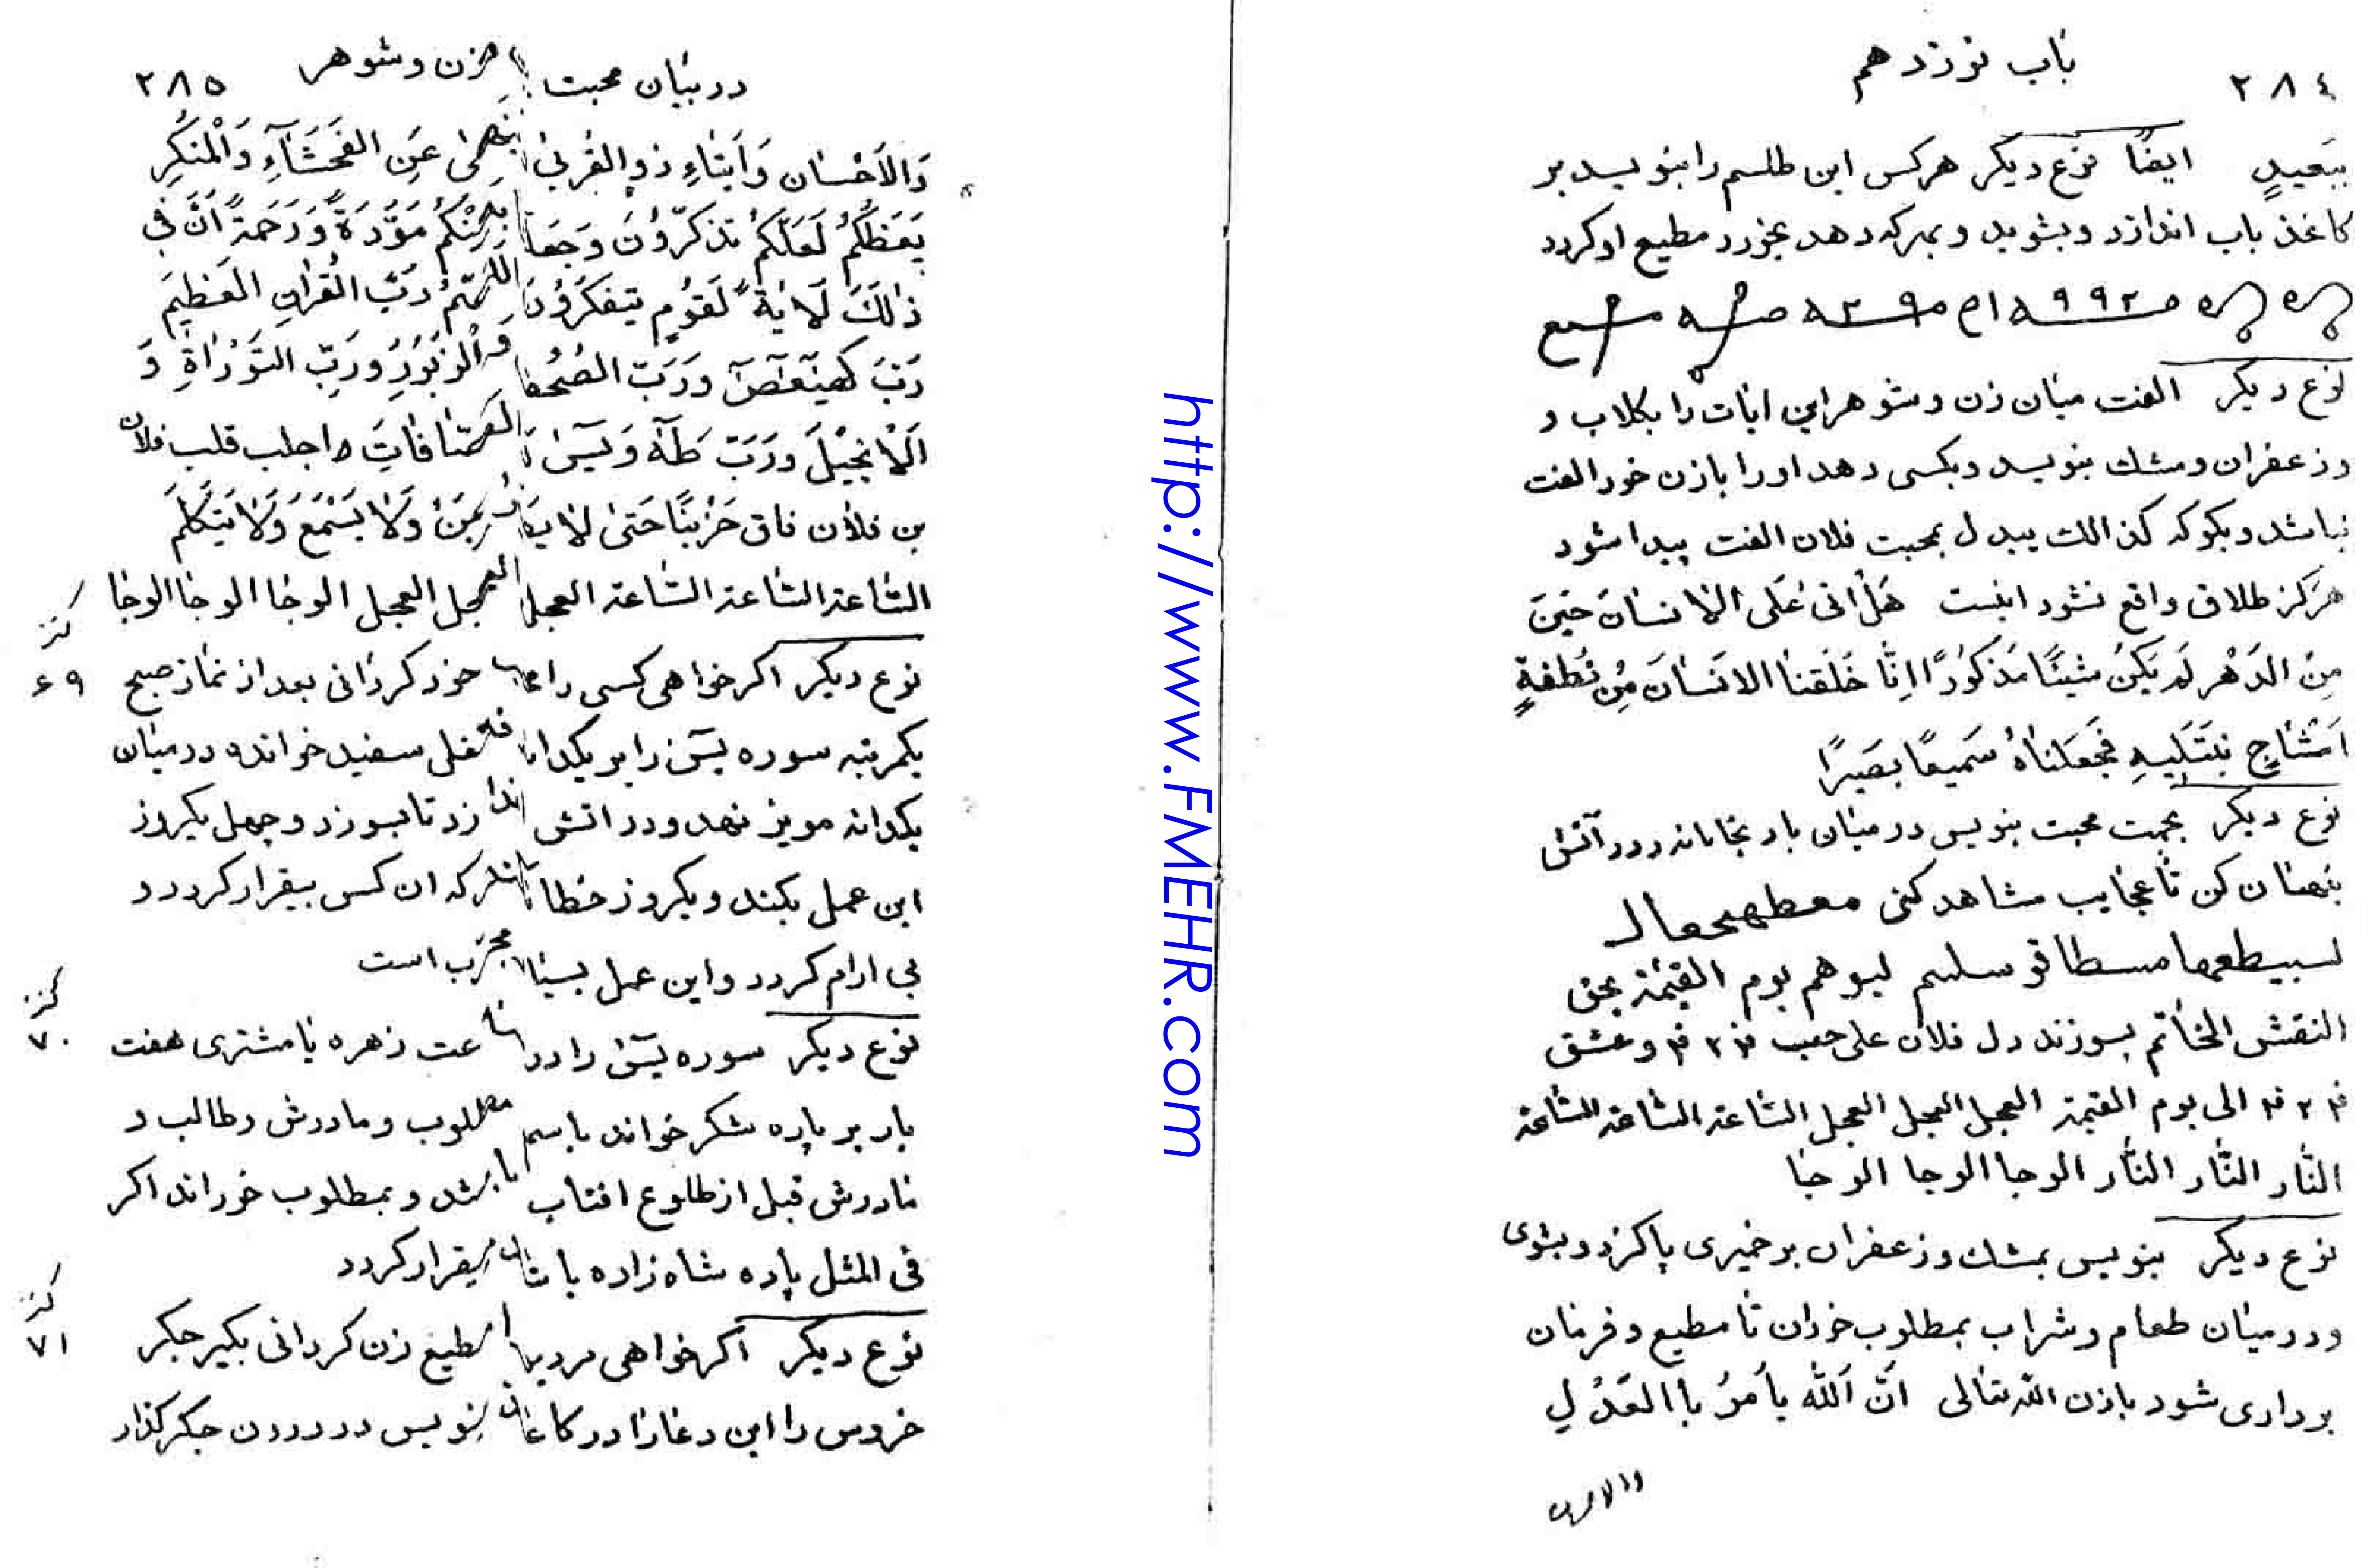 ۲۸٤ باب نوزدهم
ببَعیدٍ ایضًا نوع دیکر هرکس این طلسم را بنویسد بر
کاغذ باب اندازد و بشوید و بهرکه دهد بخورد مطیع او کردد
نوع دیکر الفت میان زن و شوهر این ایات را بکلاب و
و زعفران و مشك بنویسد و بکسی دهد او را با زن خود الفت
نباشد و بکوکه کذالك یبدل بمحبت فلان الفت پیدا شود
هرکز طلاق واقع نشود اینست هَل اتی عَلَی الانسانَ حینَ
مِنَ الدَهْرِ لَم یَکنُ شیئًا مَذکوُرًا اِنّا خَلَقنا الانسٰانَ مِن نُطفةٍ
اَمْشٰاجٍ نبتَلَیهِ فَجَعَلنٰاهُ سَمیعًا بصَیرًا
نوع دیکر بجهت محبت بنویس در میان بادنجان نه و در آتش
پنهان کن تا عجایب مشاهد کنی
یوم القیٰمة بحق
النقش الخٰاتم بسوزند دل فلان علی حب و عشق
الی یوم القیمة العجل العجل العجل السّاعة السّاعة السّاعة
النّار النّار النّار الوحا الوحا الوحا
نوع دیکر بنویس بمشك و زعفران بر خمیری پاکزه و بشوی
و در میان طعام و شراب بمطلوب خوران تا مطیع و فرمان
برداری شود باذن اللّه تعالی اَنَّ اَللّٰه یأمرُ باالعَدْلِ
والاحسان
در بیان محبت زن و شوهر ۲۸۵
وَالاَحْسٰان وَ اَیتٰاءِ ذِوِالقُربیٰ ینهٰی عَنِ الفَحَشَآءِ وَالْمُنکَرِ
یَعَظُکُمُ لَعَلّکُمُ تذکّروُنَ وَجَعَلَ بَینَکُمُ مَوَّدَةً وَ رَحَمةً اَنَّ فی
ذٰلكَ لَایٰةً لَقَوُمٍ یتفکَروُنَ اللّهُمَّ رَبَّ القُراٰنِ العَظیمَ
رَبَّ کهیٓعٓصٓ وَ رَبَّ الصُحُف وَالزبَوُرِ وَ رَبِّ التَوْرٰاةِ وَ
اَلْاِنجیْلَ وَ رَبَّ طٰهٰ وَ یٰسٓ وَ الصّافاتِ اجلب قلب فلان
بن فلان حَتیٰ لا وَلَا یَسْمَعَ وَلَا یَتَکَلَّمَ
السّاعة السّاعة السّاعة العجل العجل العجل الوحا الوحا الوحا
نوع دیکر اکر خواهی کسی را خود کردانی بعد از نماز صبح
کنز ۶۹
یکمرتبه سوره یٰسٓ را بر یکدانه فلفل سفید خوانده در میان
یکدانه مویز نهد و در اتش اندازد تا بسوزد و چهل یکروز
این عمل بکند و یکروز خطا نکند که ان کس بیقرار کردد و
بی ارام کردد و این عمل بسیار مجرّب است
نوع دیکر سوره یٰسٓ را در ساعت زهره یا مشتری هفت
کنز ۷۰
بار بر پاره شکر خواند باسم مطلوب و مادرش و طالب و
مادرش قبل از طلوع افتاب باشد و بمطلوب خوراند اکر
فی المثل پاره شاه زاده باشد بیقرار کردد
نوع دیکر اکر خواهی مرد را مطیع زن کردانی بکیر جکر
کنز ۷۱
خروس را این دعا را در کاغذ بنویس در درون جکر کذار
http://www.FMEHR.com